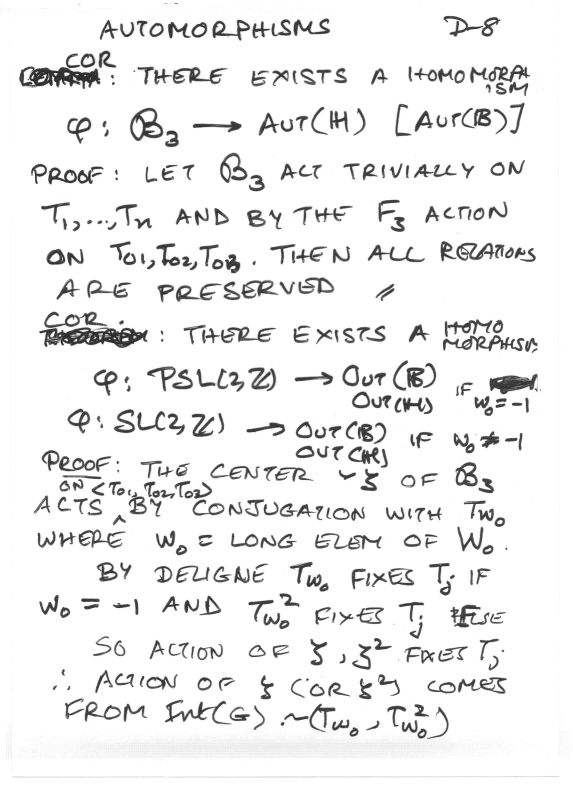 AUTOMORPHISMS D-8
COR
: THERE EXISTS A HOMOMORPHISM
φ: B₃ → AUT(H) [AUT(B)]
PROOF: LET B₃ ACT TRIVIALLY ON
T₁,...,Tn AND BY THE F₃ ACTION
ON T₀₁, T₀₂, T₀₃. THEN ALL RELATIONS
ARE PRESERVED //
COR.
: THERE EXISTS A HOMOMORPHISM
φ: PSL(2,Z) → OUT(B) OUT(H) IF W₀=-1
φ: SL(2,Z) → OUT(B) OUT(H) IF W₀≠-1
PROOF: THE CENTER ξ OF B₃
ON <T₀₁, T₀₂, T₀₂>
ACTS ^ BY CONJUGATION WITH Tw₀
WHERE W₀ = LONG ELEM OF W₀.
BY DELIGNE Tw₀ FIXES Tj IF
W₀ = -1 AND Tw₀² FIXES Tj ELSE
SO ACTION OF ξ, ξ² FIXES Tj
∴ ACTION OF ξ (OR ξ²) COMES
FROM Int(G) ~(Tw₀, Tw₀²)